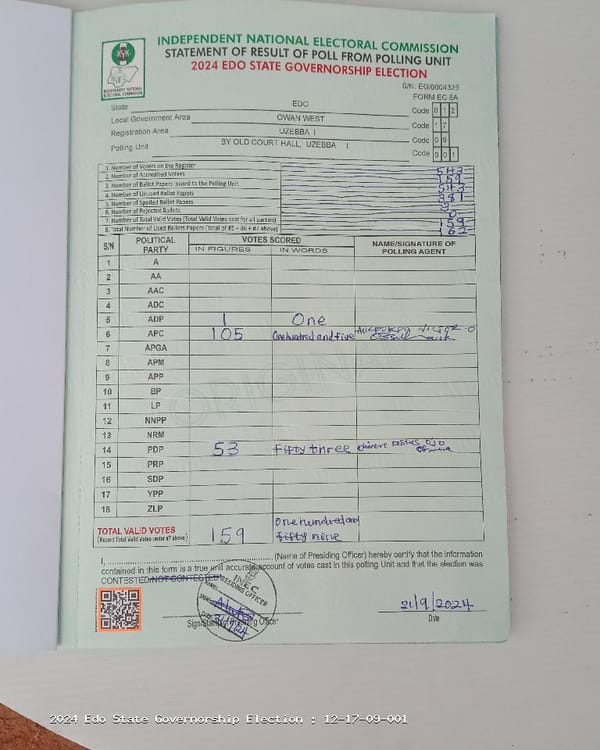 INDEPENDENT NATIONAL ELECTORAL COMMISSION
STATEMENT OF RESULT OF POLL FROM POLLING UNIT
2024 EDO STATE GOVERNORSHIP ELECTION
INDEPENDENT NATIONAL ELECTORAL COMMISSION
S/N. EG/0004325
FORM EC 8A
State EDO Code 0 1 2
Local Government Area OWAN WEST Code 1 7
Registration Area UZEBBA I Code 0 9
Polling Unit BY OLD COURT HALL, UZEBBA I Code 0 0 1
1. Number of Voters on the Register 543
2. Number of Accredited Voters 159
3. Number of Ballot Papers Issued to the Polling Unit 543
4. Number of Unused Ballot Papers 381
5. Number of Spoiled Ballot Papers 3
6. Number of Rejected Ballots 0
7. Number of Total Valid Votes (Total Valid Votes cast for all parties) 159
8. Total Number of Used Ballots Papers (Total of #5 + #6 + #7 above) 162
S/N POLITICAL PARTY VOTES SCORED NAME/SIGNATURE OF POLLING AGENT
IN FIGURES IN WORDS
1 A
2 AA
3 AAC
4 ADC
5 ADP 1 One
6 APC 105 One hundred and five
7 APGA
8 APM
9 APP
10 BP
11 LP
12 NNPP
13 NRM
14 PDP 53 Fifty three
15 PRP
16 SDP
17 YPP
18 ZLP
TOTAL VALID VOTES 159 One hundred and fifty nine
(Record Total Valid Votes under #7 above)
I, (Name of Presiding Officer) hereby certify that the information
contained in this form is a true and accurate account of votes cast in this polling Unit and that the election was
CONTESTED/NOT CONTESTED
INEC
PRESIDING OFFICER
21/9/2024
Date
2024 Edo State Governorship Election : 12-17-09-001